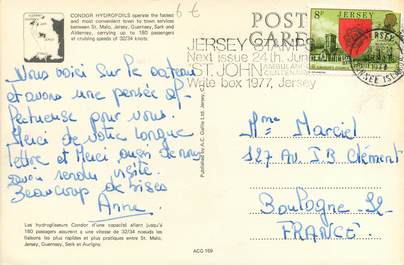 6 €
CONDOR HYDROFOILS operate the fastest
and most convenient town to town services
between St. Malo, Jersey, Guernsey, Sark and
Alderney, carrying up to 180 passengers
and cruising speeds of 32/34 knots.
POST
CARD
8p JERSEY
JERSEY STAMPS
Next issue 24th. June
ST. JOHN AMBULANCE
CENTENARY
Write box 1977, Jersey
JERSEY
CHANNEL ISLANDS
Nous voici sur le bateau
et avons une pensée af-
fectueuse pour vous.
Merci de votre longue
lettre et Merci aussi de nous
avoir rendu visite.
Beaucoup de bises
Anne
Mme Marciel
127 Av. J.B Clément
Boulogne-
FRANCE.
Les hydroglisseurs Condor d'une capacité allant jusqu'à
180 passagers assurent a une vitesse de 32/34 noeuds les
liaisons les plus rapides et plus pratiques entre St. Malo,
Jersey, Guernesey, Serk et Aurigny.
Published by A.C. Gallie Ltd. Jersey
ACG 169